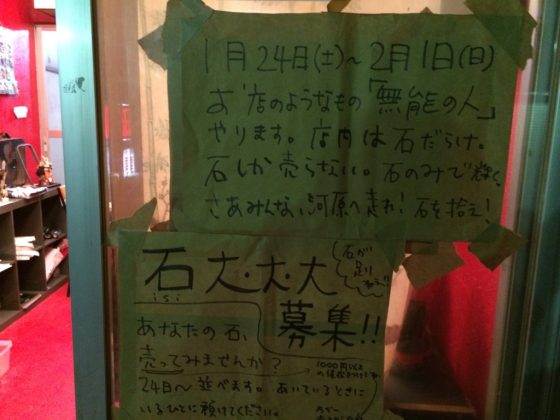 1月24日(土)～2月1日(日)
お店のようなもの「無能の人」
やります。店内は石だらけ。
石しか売らない。石のみで稼ぐ。
さあみんな、河原へ走れ！石を拾え！
石が
足り
石 大・大・大
isi
募集!!
あなたの石、
売ってみませんか？
1000円以上
24日～並べます。あいているときに
いるひとに預けてください。